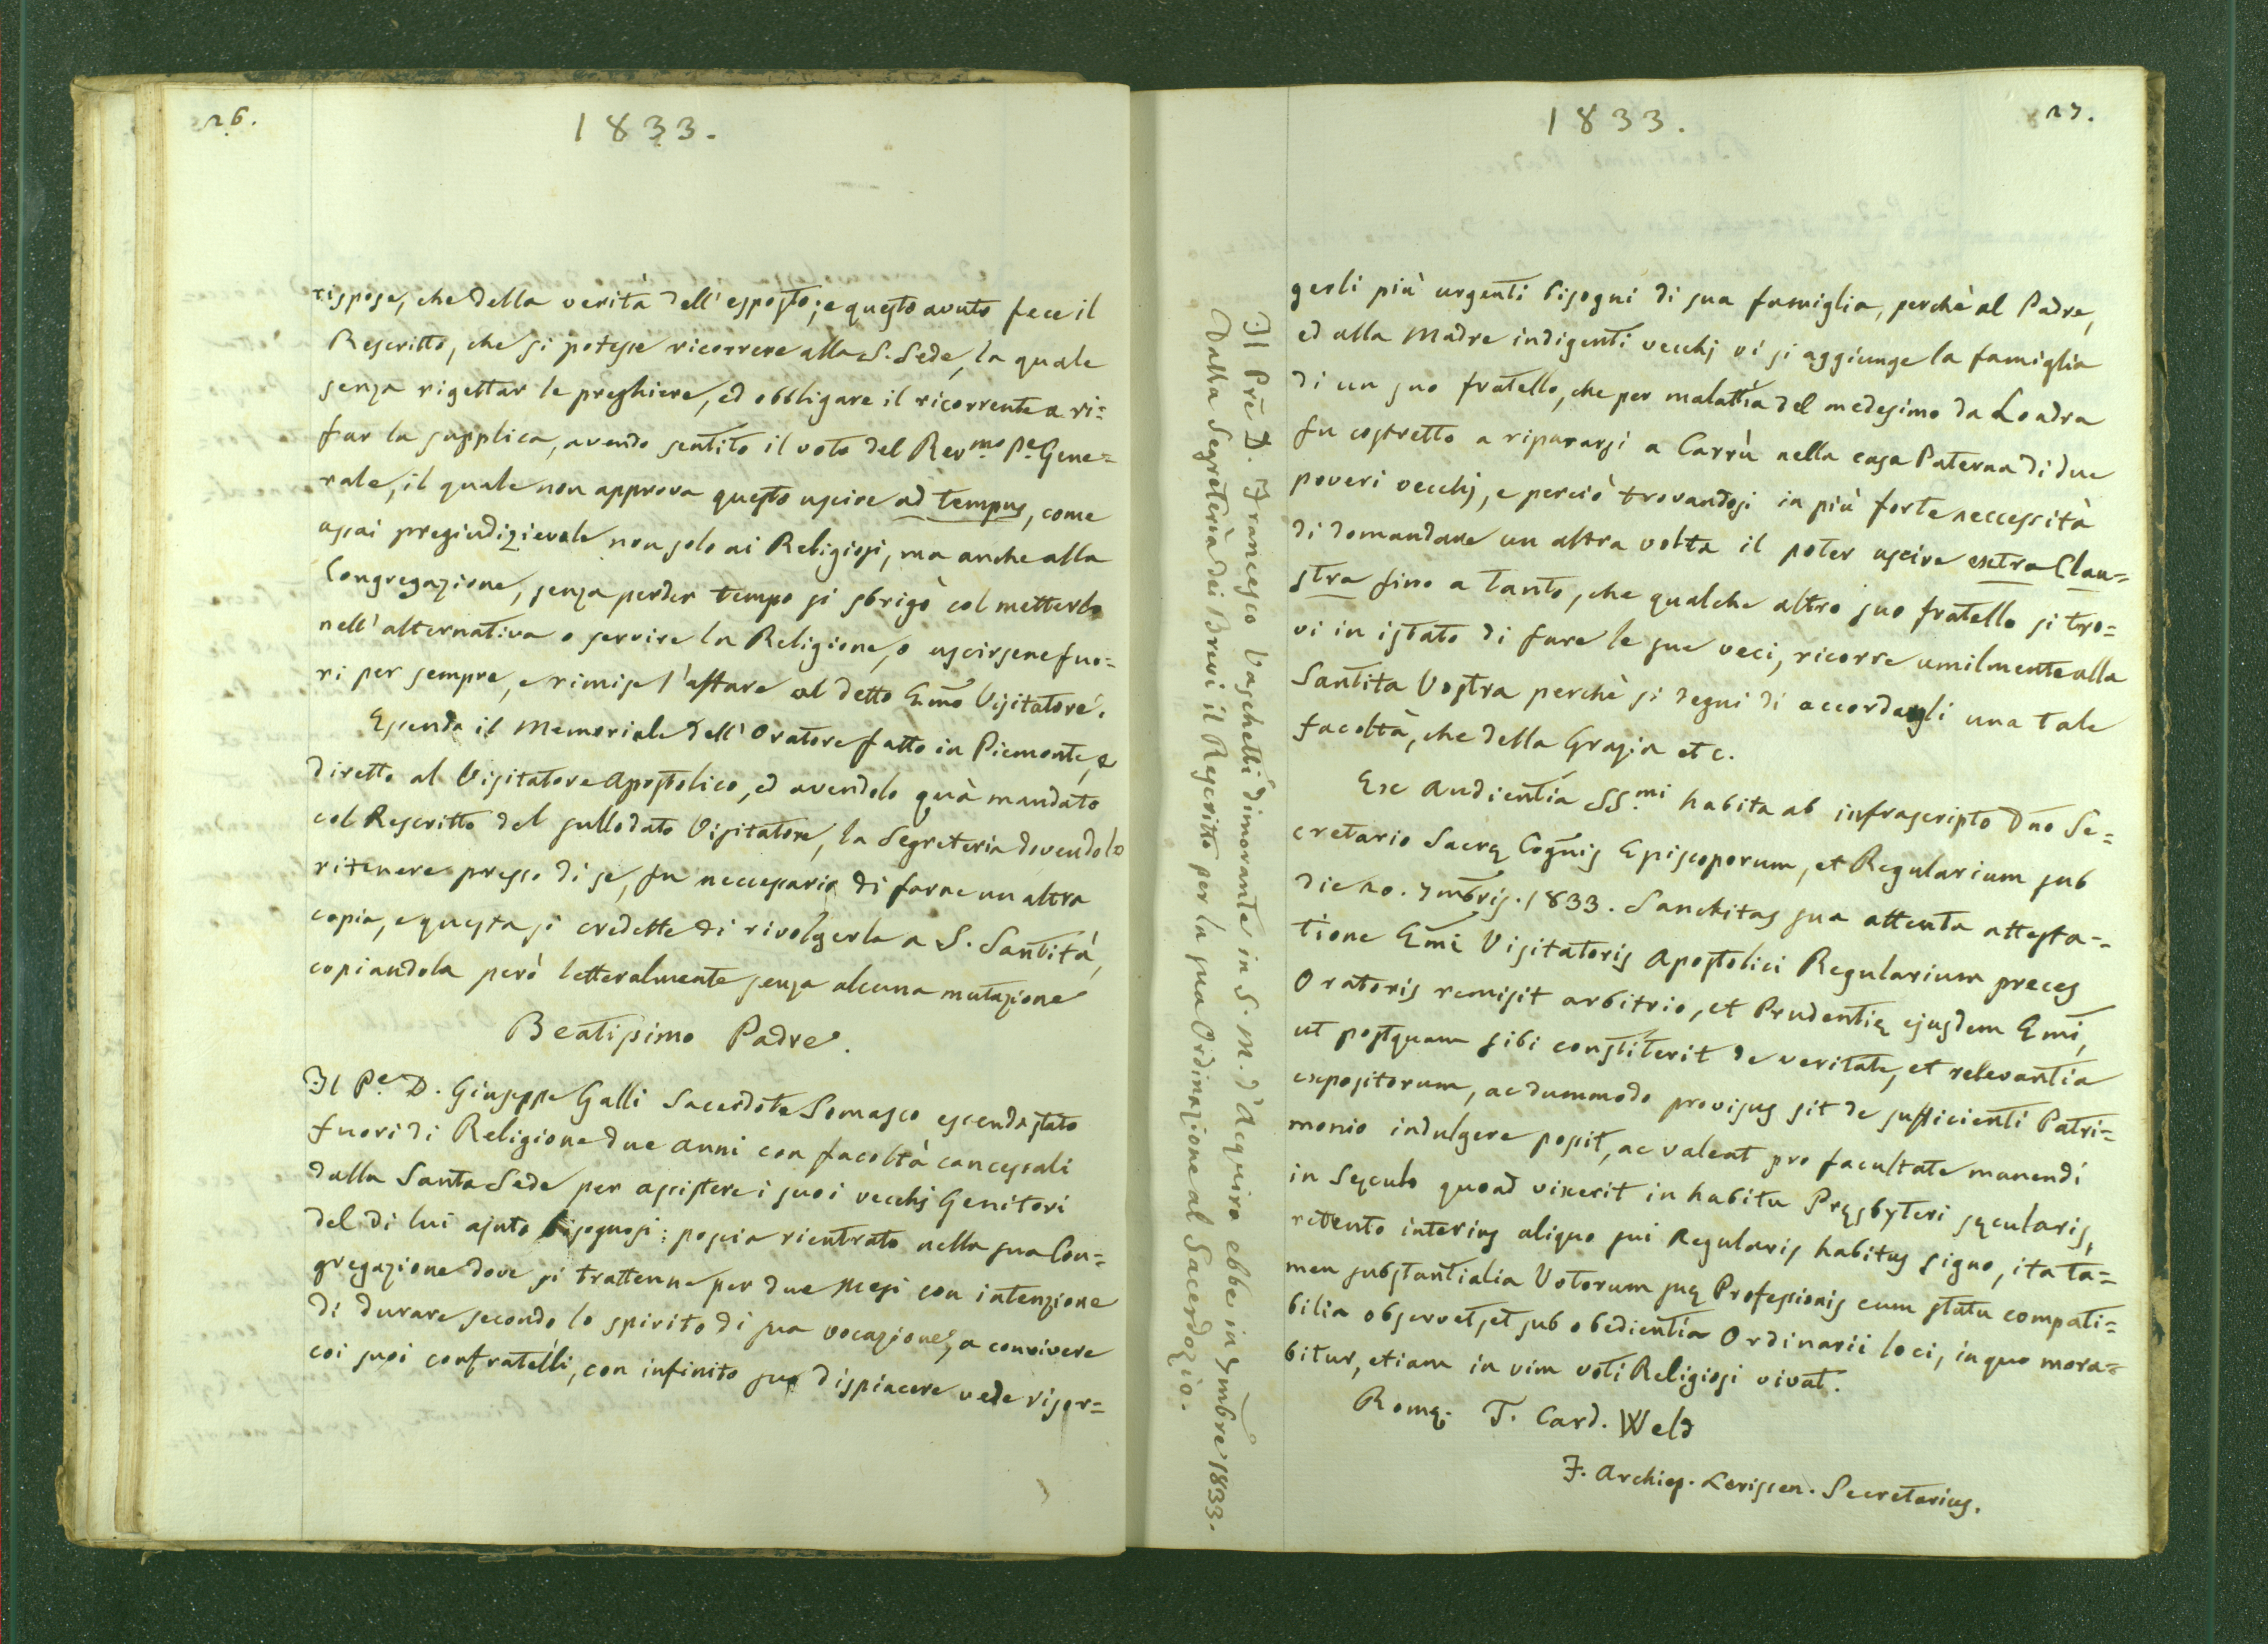 26.
1833.
rispose, che della verità dell'esposto; e questo avuto fece il
Rescritto, che si potesse ricorrere alla S. Sede, la quale
senza rigettar le preghiere, ed obbligare il ricorrente a ri=
far la supplica, avendo sentito il voto del Rev.mo P.e Gene=
rale, il quale non approva questo uscire ad tempus, come
assai pregiudizievole non solo ai Religiosi, ma anche alla
Congregazione, senza perder tempo si sbrigò col metterlo
nell'alternativa o servire la Religione, o uscirsene fuo=
ri per sempre, e rimise l'affare al detto Emo Visitatore.
Essendo il Memoriale dell'Oratore fatto in Piemonte, e
diretto al Visitatore Apostolico, ed avendolo quà mandato
col Rescritto del sullodato Visitatore, la Segreteria dovendolo
ritenere presso di se, fu neccessario di farne un altra
copia, e questa si credette di rivolgerla a S. Santità,
copiandola però letteralmente senza alcuna mutazione
Beatissimo Padre.
Il P.e D. Giuseppe Galli Sacerdote Somasco essendo stato
fuori di Religione due anni con facoltà concessali
dalla Santa Sede per assistere i suoi vecchj Genitori
del di lui ajuto bisognosi: poscia rientrato nella sua Con=
gregazione dove si trattenne per due Mesi con intenzione
di durare secondo lo spirito di sua vocazione, a convivere
coi suoi confratelli, con infinito suo dispiacere vede risor=
27.
1833.
Il Pre D. Francesco Vaschetti dimorante in S. M. d'Aquiro ebbe in 7mbre 1833.
Dalla Segreteria dei Brevi il Rescritto per la sua Ordinazione al Sacerdozio.
gerli più urgenti bisogni di sua famiglia, perchè al Padre,
ed alla Madre indigenti vecchj vi si aggiunge la famiglia
di un suo fratello, che per malattia del medesimo da Londra
fu costretto a ripararsi a Carrù nella casa Paterna di due
poveri vecchj, e perciò trovandosi in più forte neccessità
di domandare un altra volta il poter uscire extra Clau=
stra fino a tanto, che qualche altro suo fratello si tro=
vi in istato di fare le sue veci, ricorre umilmente alla
Santita Vostra perchè si degni di accordargli una tale
facoltà, che della Grazia etc.
Ex Audientia SS.mi habita ab infrascripto Dno Se=
cretario Sacrę Cognis Episcoporum, et Regularium sub
die 20. 7mbris. 1833. Sanctitas sua attenta attesta=
tione Emi Visitatoris Apostolici Regularium preces
Oratoris remisit arbitrio, et Prudentię ejusdem Emi,
ut postquam sibi constiterit de veritate, et relevantia
expositorum, ac dummodo provisus sit de sufficienti Patri=
monio indulgere possit, ac valeat pro facultate manendi
in Sęculo quoad vixerit in habitu Pręsbyteri sęcularis,
retento interius aliquo sui Regularis habitus signo, ita ta=
men substantialia Votorum suę Professionis cum statu compati=
bilia observet, et sub obedientia Ordinarii loci, in quo mora=
bitur, etiam in vim voti Religiosi vivat.
Romę. T. Card. Weld
F. Archiep. Lerissen. Secretarius.